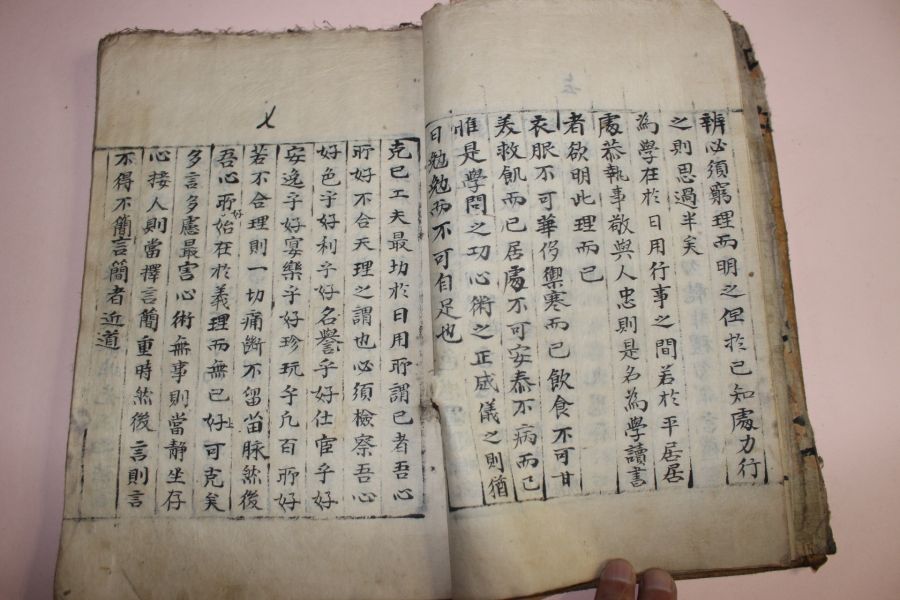 辨必須窮理而明之但扵已知處力行
之則思過半矣
為學在扵日用行事之間若扵平居居
處恭執事敬與人忠則是名為學讀書
者欲明此理而已
衣服不可華侈禦寒而已飲食不可甘
美救飢而已居處不可安泰不病而已
惟是學問之功心術之正威儀之則猶
日勉勉而不可自足也
克己工夫最切扵日用所謂己者吾心
所好不合天理之謂也必須檢察吾心
好色乎好利乎好名譽乎好仕宦乎好
安逸乎好宴樂乎好珍玩乎凡百所好
若不合理則一切痛斷不留苗脉然後
吾心所好始在扵義理而無已好可克矣
多言多慮最害心術無事則當静坐存
心接人則當擇言簡重時然後言則言
不得不簡言簡者近道